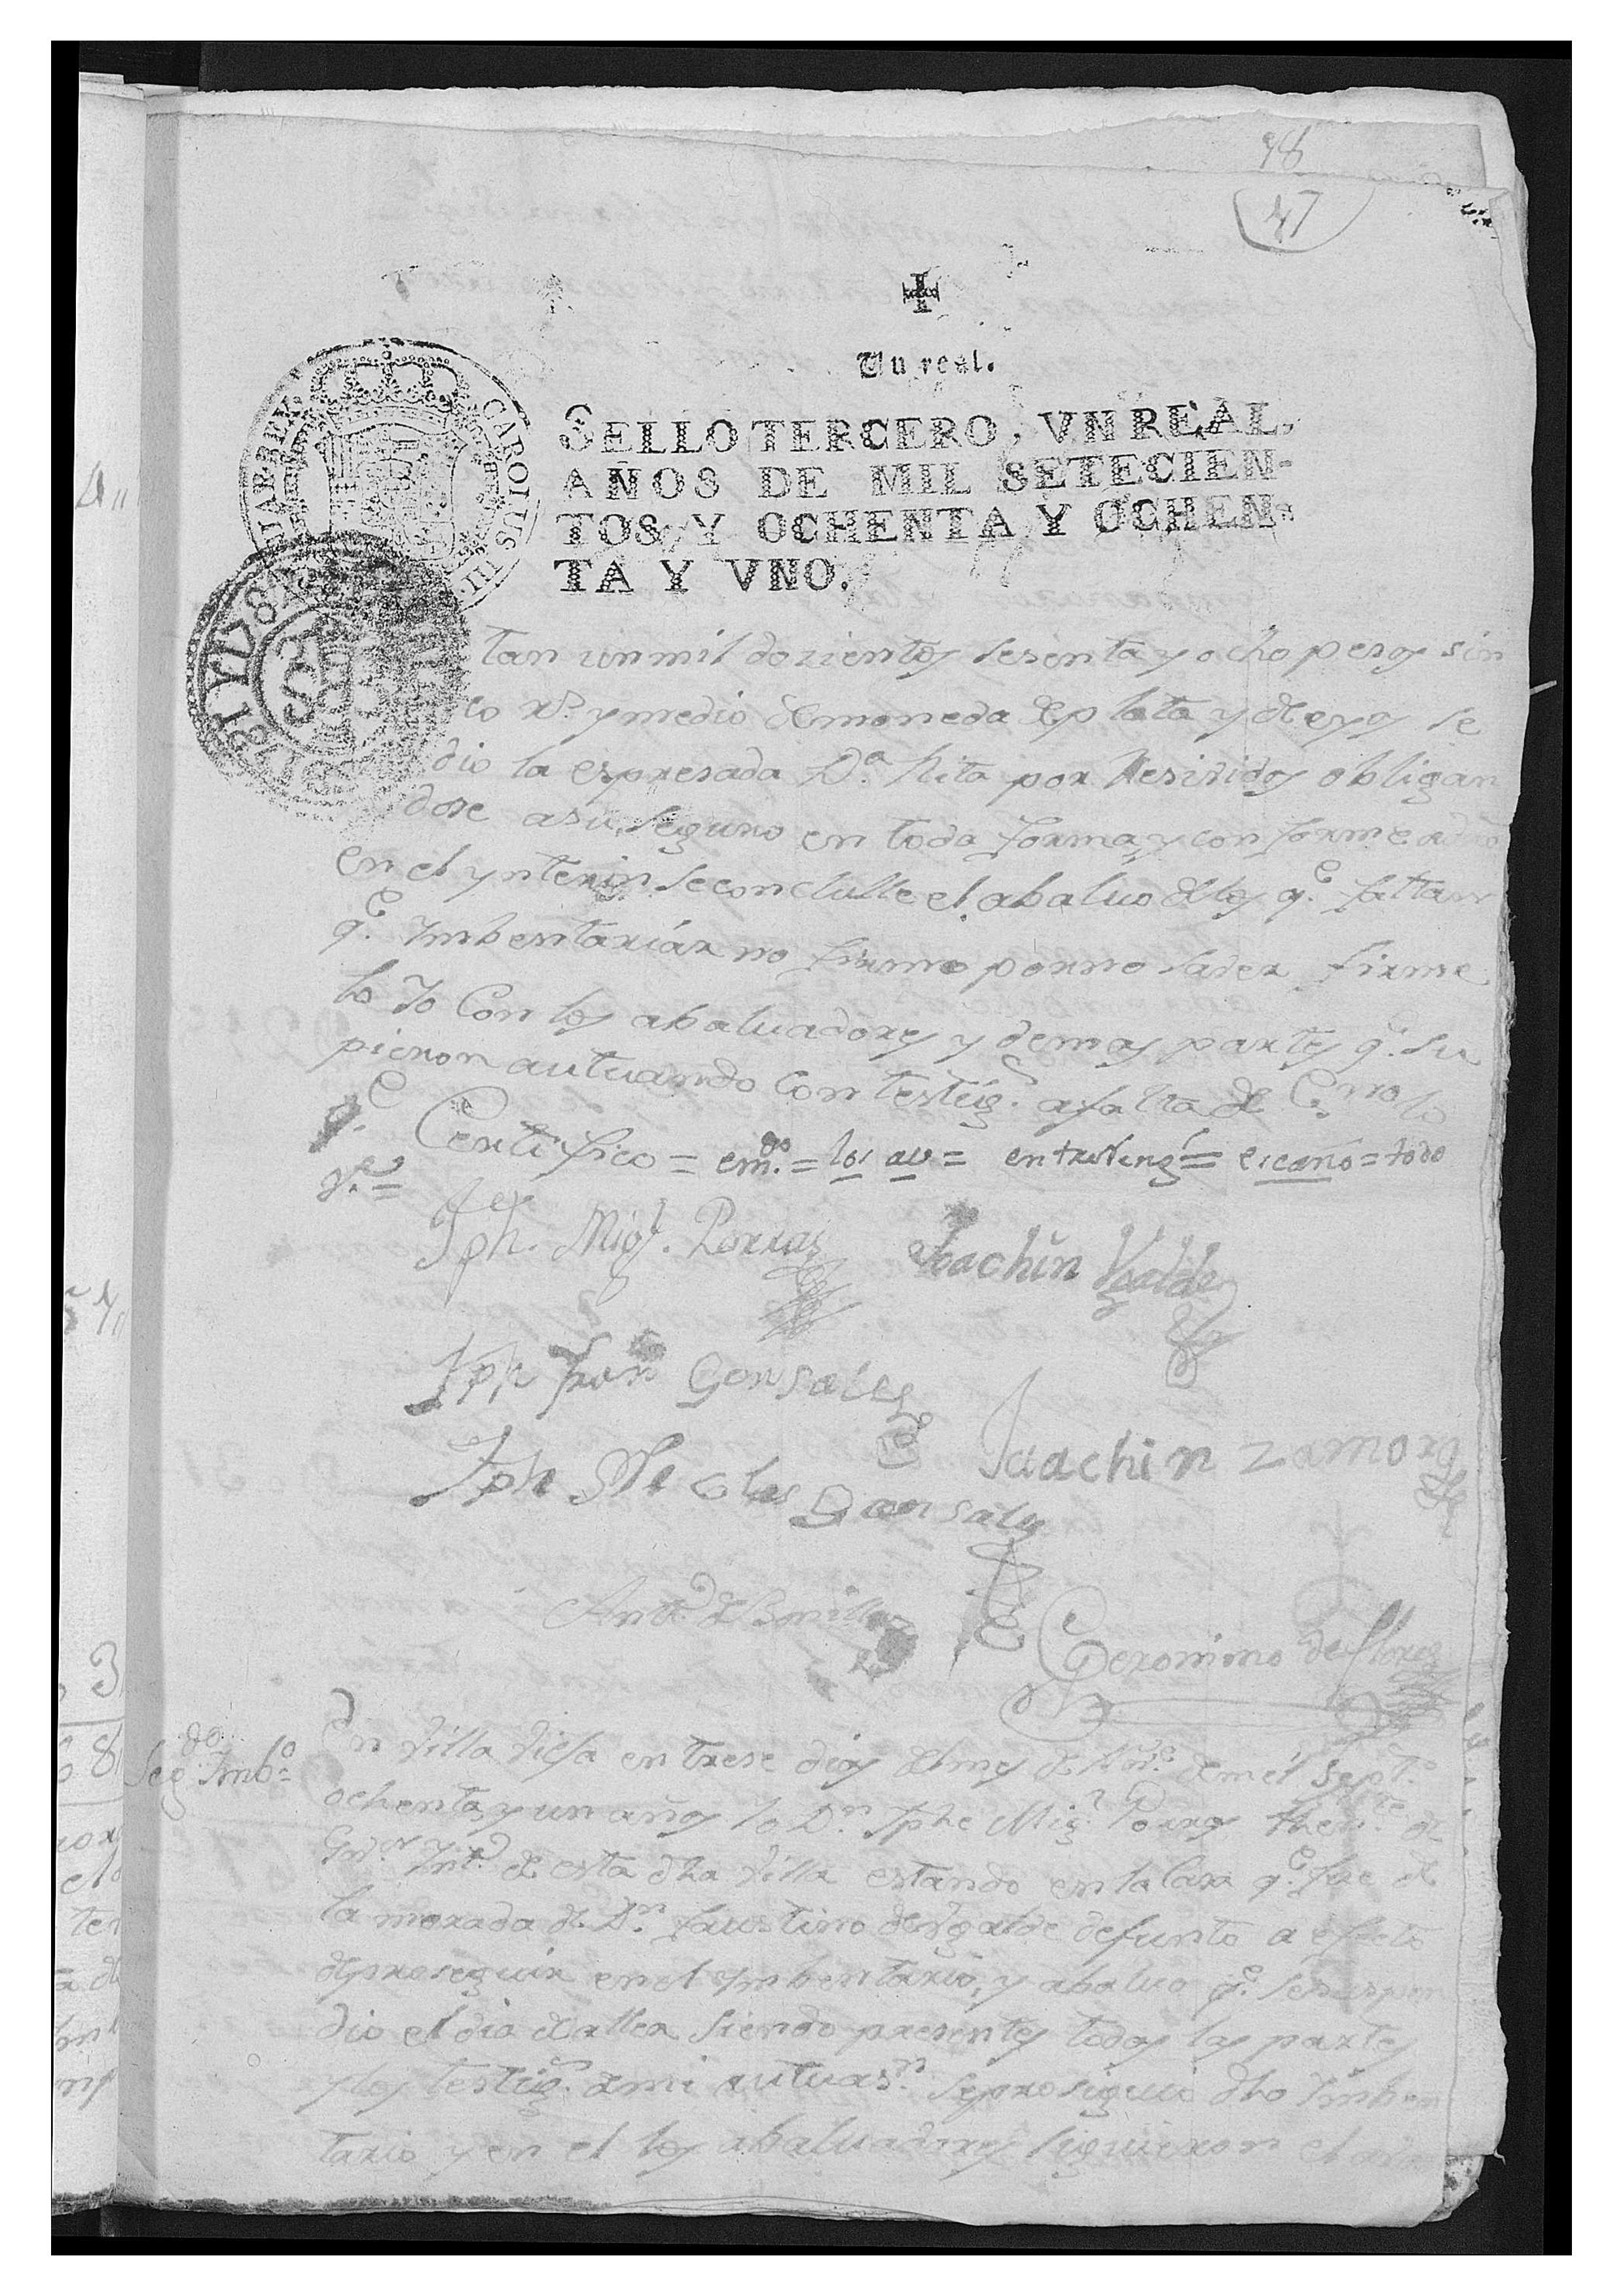 48
47
Un real.
SELLO TERCERO, VN REAL,
AÑOS DE MIL SETECIEN-
TOS Y OCHENTA Y OCHEN-
TA Y VNO.
CAROLUS III
tan un mil dozientos sesenta y ocho pesos sin
co rs. y medio de moneda de plata y de eyos se
dio la espresada Da. Rita por Resividos obligan
dose asu seguro en toda forma y conforme adro
en el ynterin se conclulle el abaluo de los qe. faltan
qe. Imbentariar no firmo por no saver firme
lo Yo Con los abaluadores y demas partes qe. su
pieron autuando con testigs. afalta de Esno. lo
qe. Certifico = emdo. = los au = entrerrengs = escaño = todo
Ve. =
Jph. Migl. Porras Joachin Ugalde
Jph fran Gonsales
Joachin Zamora
Jph Nicolas Gonsales
Anto. de Bonilla
Geronimo de flores
Segdo. Imbo. =
En Villa Viesa en trese dias del mes de de mil Septs.
ochenta y un años Yo Dn. Jphe Migl. Porras thente. de
Govr. Into. de esta dha Villa estando en la Casa qe. fue de
la morada de Dn. faustino de Ugalde defunto a efecto
de proseguir en el Imbentario, y abaluo qe. se suspen
dio el dia de aller siendo presentes todas las partes
y los testigs. de mi autuasn. se prosiguio dho Imben
tario y en el los abaluadores siguieron el